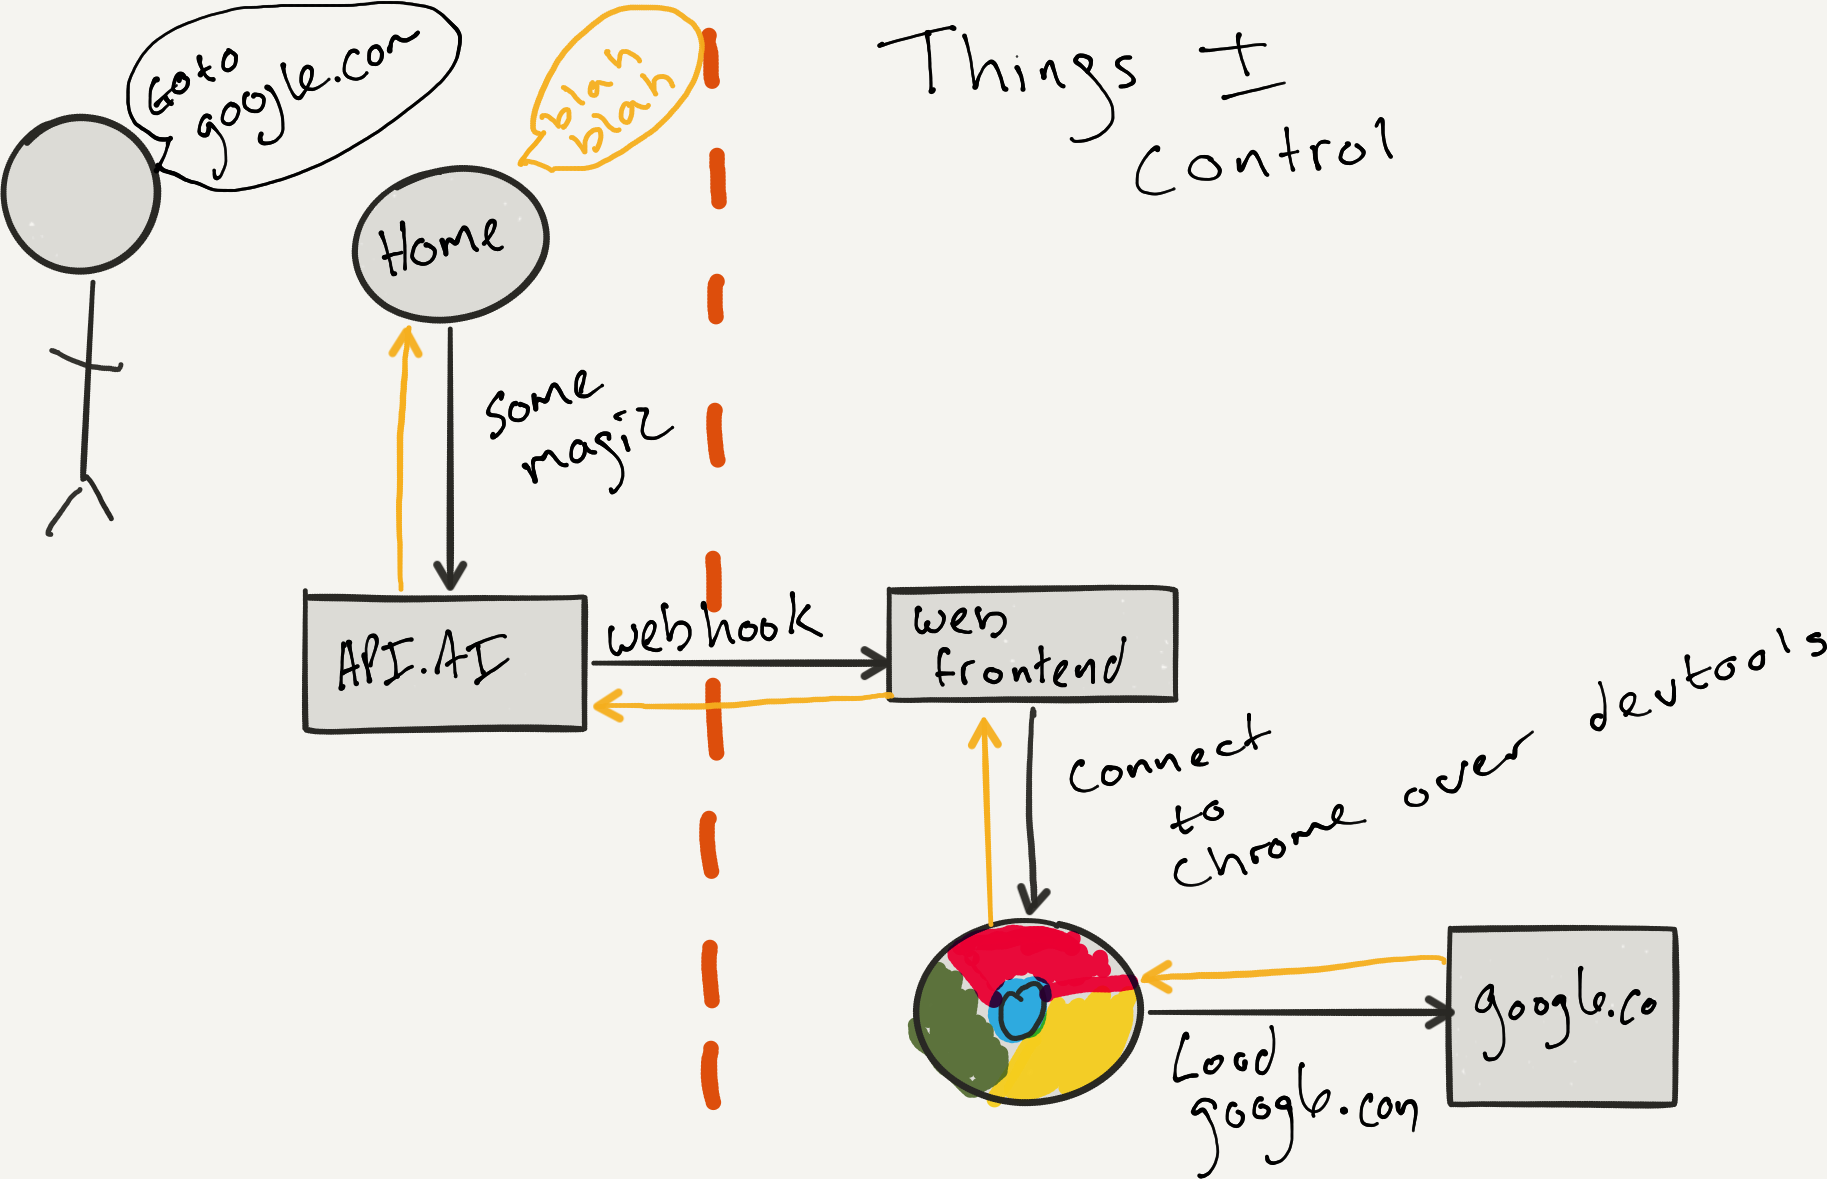 Go to
google.com
blah
blah
Things I
Control
Home
some
magic
API.AI
webhook
web
frontend
connect
to
chrome over devtools
Load
google.com
google.co